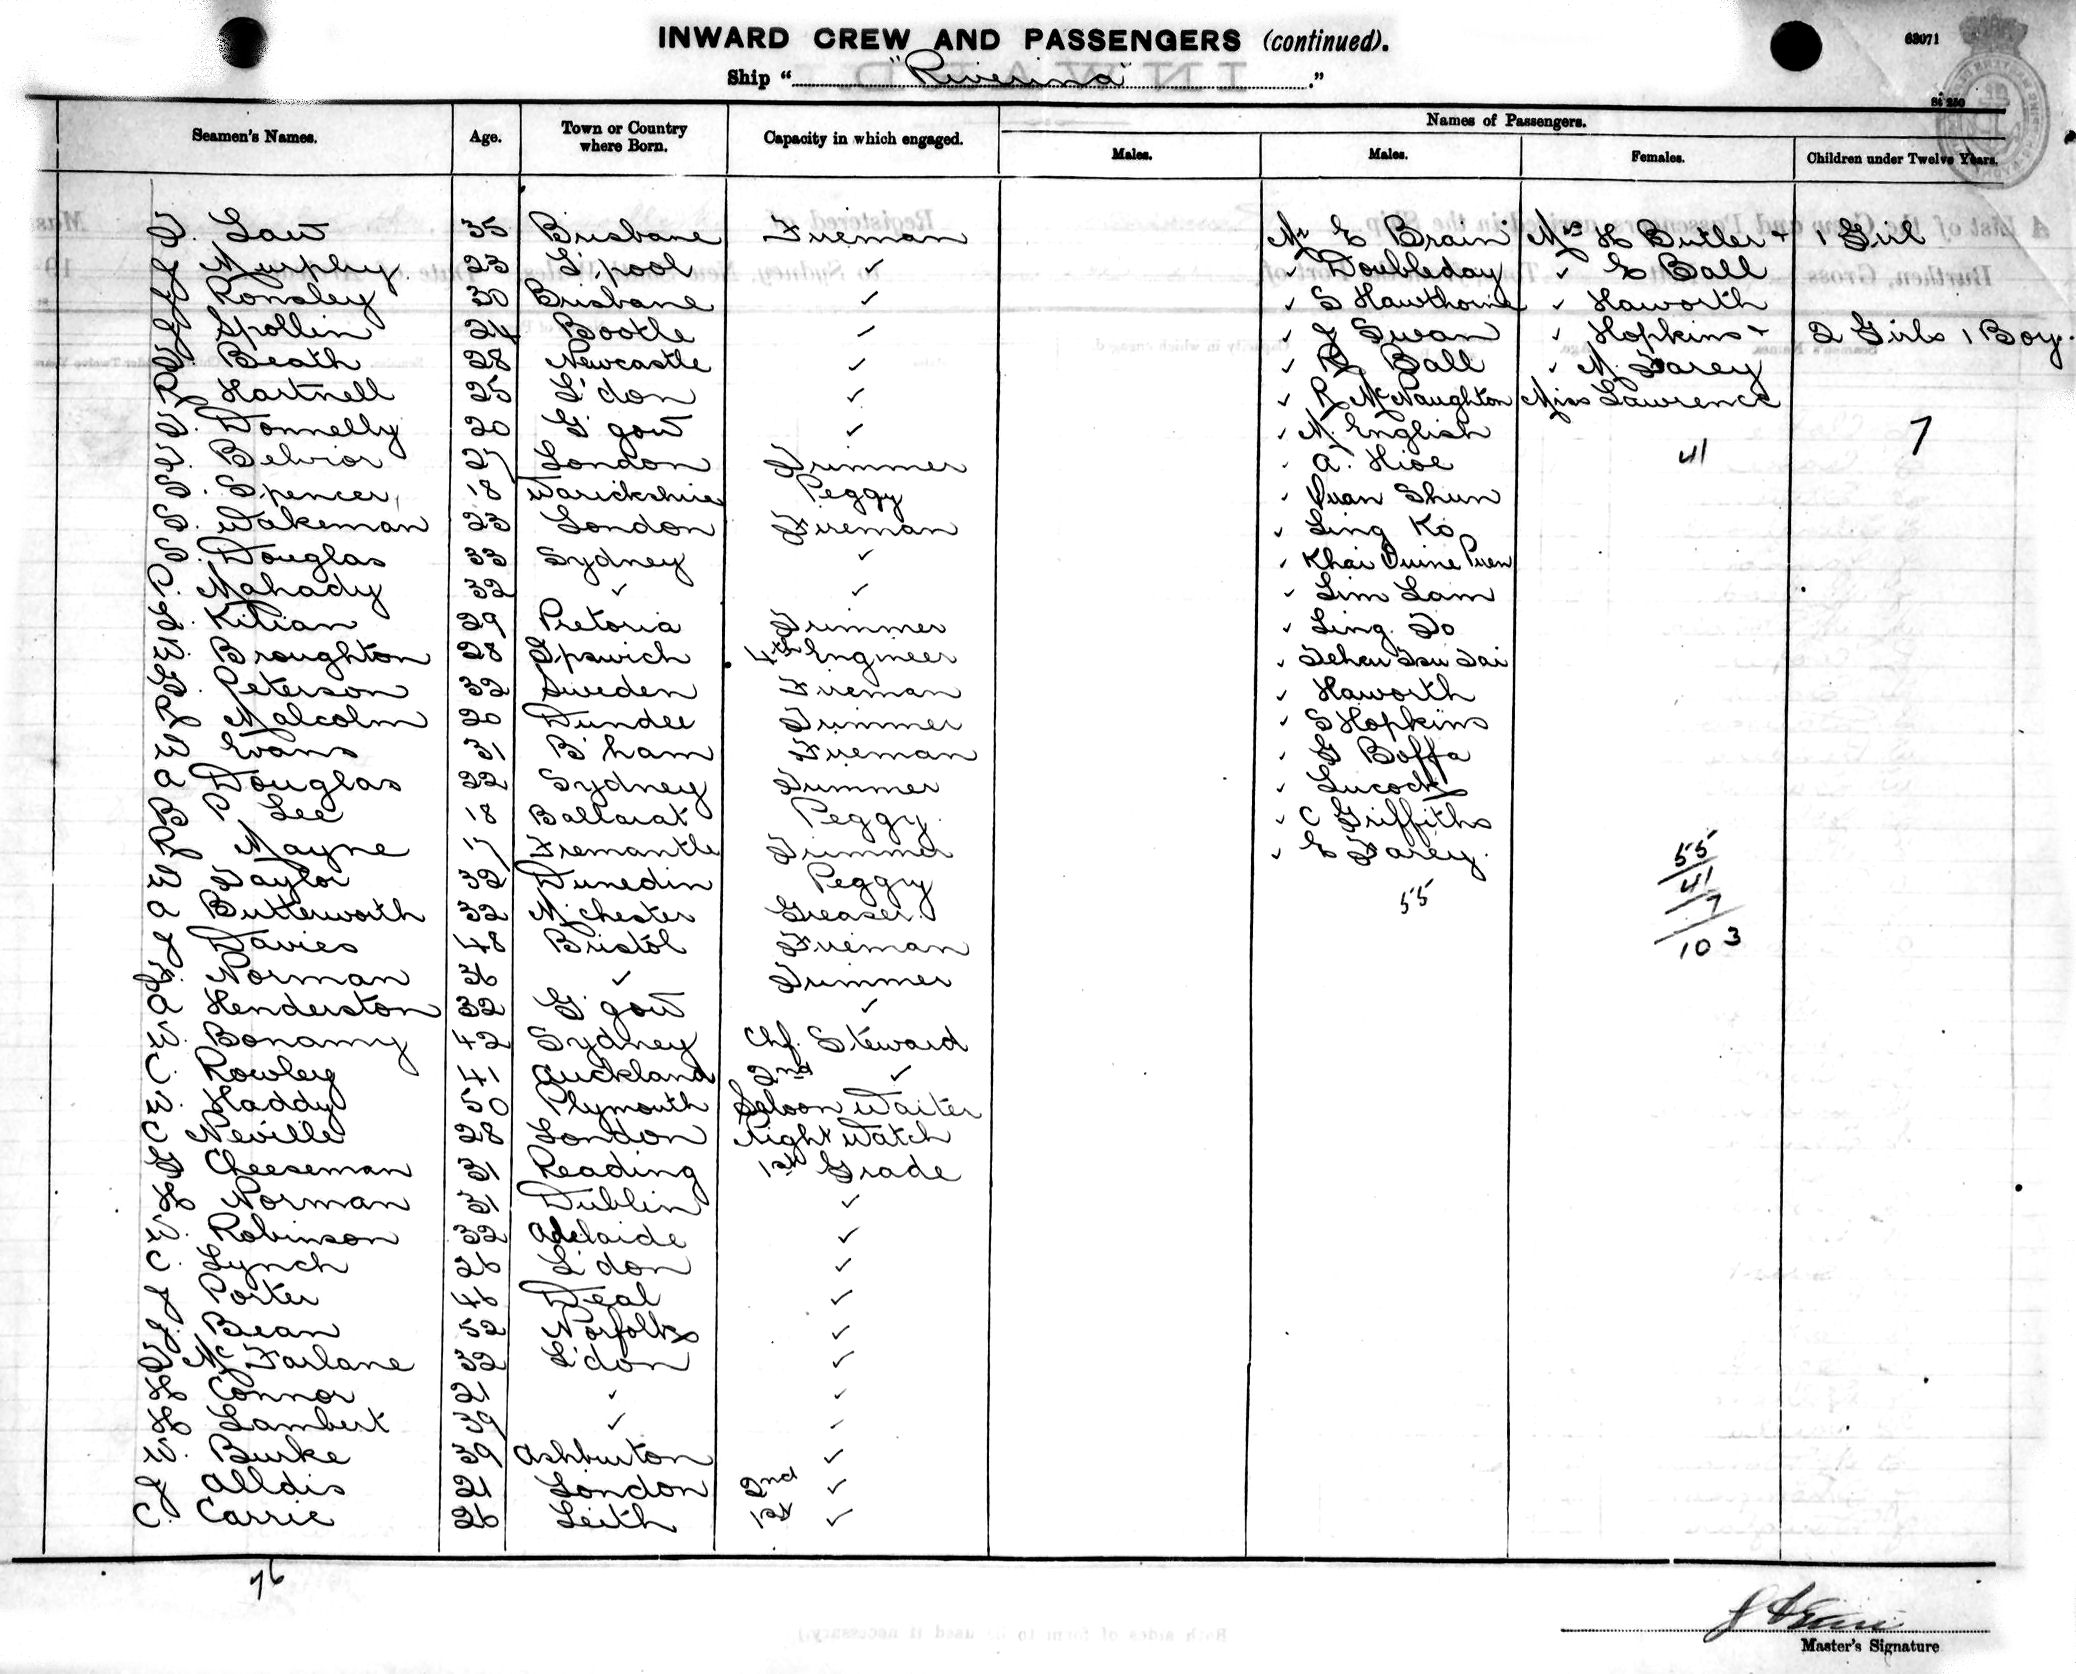 INWARD CREW AND PASSENGERS (continued).
63071
Ship "Riverina"
St 250
Seamen's Names. Age. Town or Country where Born. Capacity in which engaged. Names of Passengers.
Males. Males. Females. Children under Twelve Years.
Law 35 Brisbane Fireman Mr E Brain Mrs H Butler + 1 Girl
J Murphy 23 L'pool ✓ ✓ Doubleday ✓ E Ball
J Ronsley 30 Brisbane ✓ ✓ S Hawthorne ✓ Haworth
J Spollin 24 Bootle ✓ ✓ J Swan ✓ Hopkins + 2 Girls 1 Boy.
Beath 28 Newcastle ✓ ✓ R Ball ✓ M. Farey
R Hartnell 25 L'don ✓ ✓ R McNaughton Miss Lawrence
Donnelly 20 G'gow ✓ ✓ M. English 41 7
Belvior 27 London Trimmer ✓ A. Hioe
S. Spencer 18 Warickshire Peggy ✓ Quan Shun
S. Wakeman 23 London Fireman ✓ Ling Ko
S. Douglas 33 Sydney ✓ ✓ Khai
P. Mahady 32 ✓ ✓ ✓ Lim Lam
L. Kilian 29 Pretoria Trimmer ✓ Ling
W. Broughton 28 Ipswich 4th Engineer ✓ Tsu Tai
G. Peterson 32 Sweden Fireman ✓ Haworth
R Malcolm 20 Dundee Trimmer ✓ S Hopkins
W Evans 31 B'ham Fireman ✓ G Boffa
A Douglas 22 Sydney Trimmer ✓ Lucock
B P Lee 18 Ballarat Peggy. ✓ C Griffiths
R Mayne 17 Fremantle Trimmer ✓ E Farey. 55
W Taylor 32 Dunedin Peggy 55 41
A Butterworth 32 M'chester Greaser. 7
J Davies 48 Bristol Fireman 103
Norman 36 ✓ Trimmer
A Henderston 32 G'gow ✓
W. Bonamy 42 Sydney Chf. Steward
C. Rowley 41 Auckland 2nd ✓
W. Haddy 50 Plymouth Saloon Waiter
C Neville 28 London Night Watch
G Cheeseman 31 Reading 1st Grade
H Norman 31 Dublin ✓
W. Robinson 32 Adelaide ✓
C. Lynch 26 L'don ✓
J Porter 46 Deal ✓
J. Bean 52 Norfolk ✓
McFarlane 32 L'don ✓
H Connor 21 ✓ ✓
H Lambert 39 ✓ ✓
W. Burke 39 Ashburton ✓
J Alldis 21 London 2nd ✓
C. Carrie 26 Leith 1st ✓
76
Master's Signature